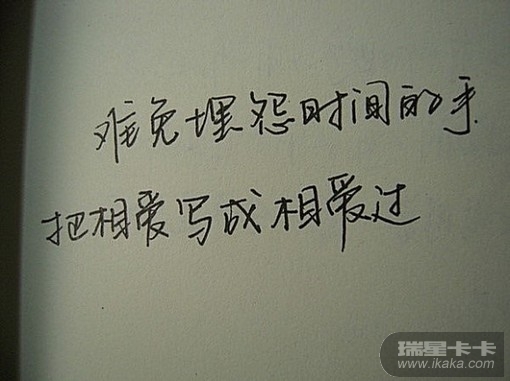 难免埋怨时间的手
把相爱写成相爱过
瑞星卡卡
www.ikaka.com